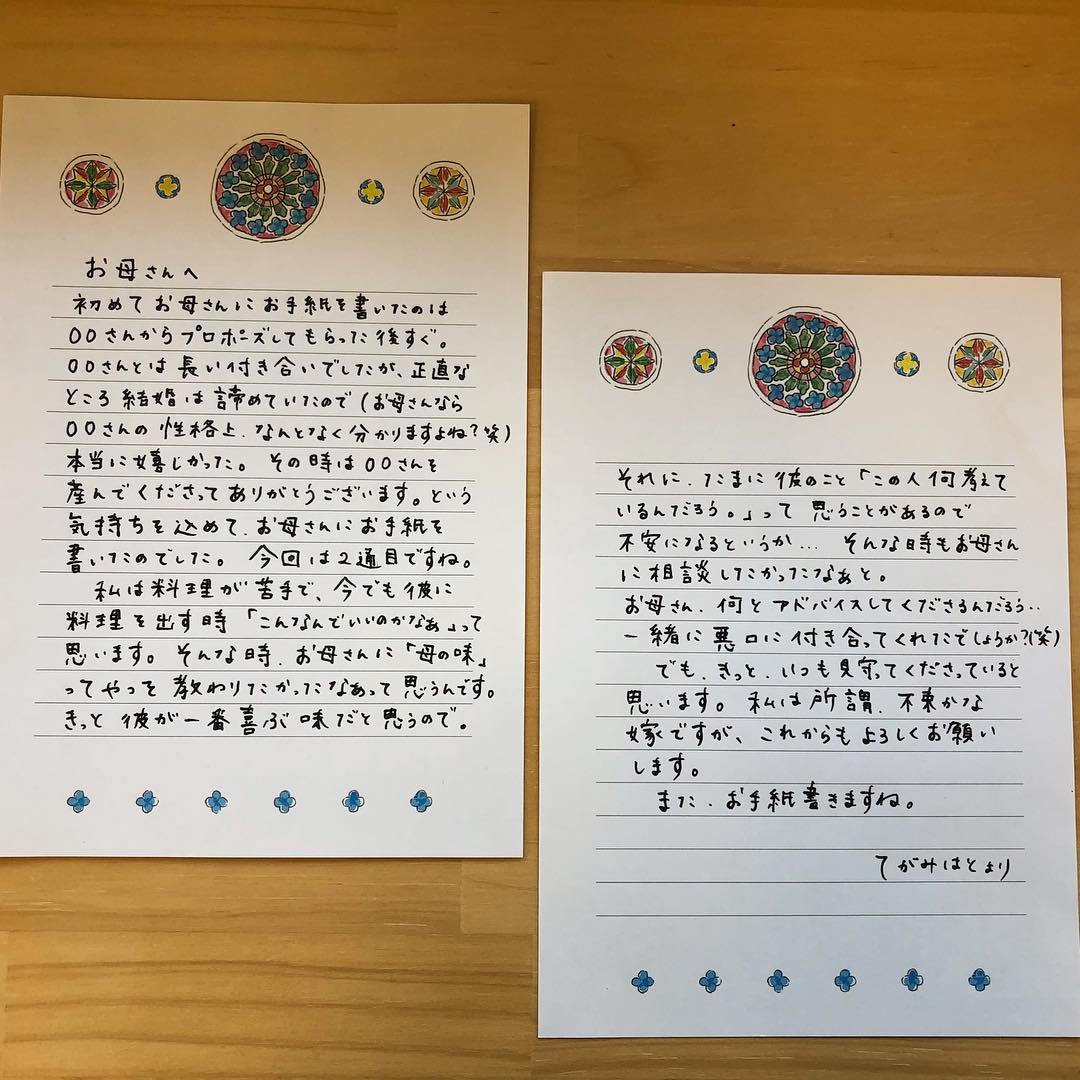 お母さんへ
初めてお母さんにお手紙を書いたのは
○○さんからプロポーズしてもらった後すぐ。
○○さんとは長い付き合いでしたが、正直な
ところ結婚は諦めていたので(お母さんなら
○○さんの性格上、なんとなく分かりますよね?笑)
本当に嬉しかった。その時は○○さんを
産んでくださってありがとうございます。という
気持ちを込めて、お母さんにお手紙を
書いたのでした。今回は2通目ですね。
私は料理が苦手で、今でも彼に
料理を出す時「こんなんでいいのかなぁ」って
思います。そんな時、お母さんに「母の味」
ってやつを教わりたかったなあって思うんです。
きっと彼が一番喜ぶ味だと思うので。
それに、たまに彼のこと「この人何考えて
いるんだろう。」って思うことがあるので
不安になるというか… そんな時もお母さん
に相談したかったなあと。
お母さん、何とアドバイスしてくださるんだろう..
一緒に悪口に付き合ってくれたでしょうか?(笑)
でも、きっと、いつも見守ってくださっていると
思います。私は所謂、不束かな
嫁ですが、これからもよろしくお願い
します。
また、お手紙書きますね。
てがみはとより